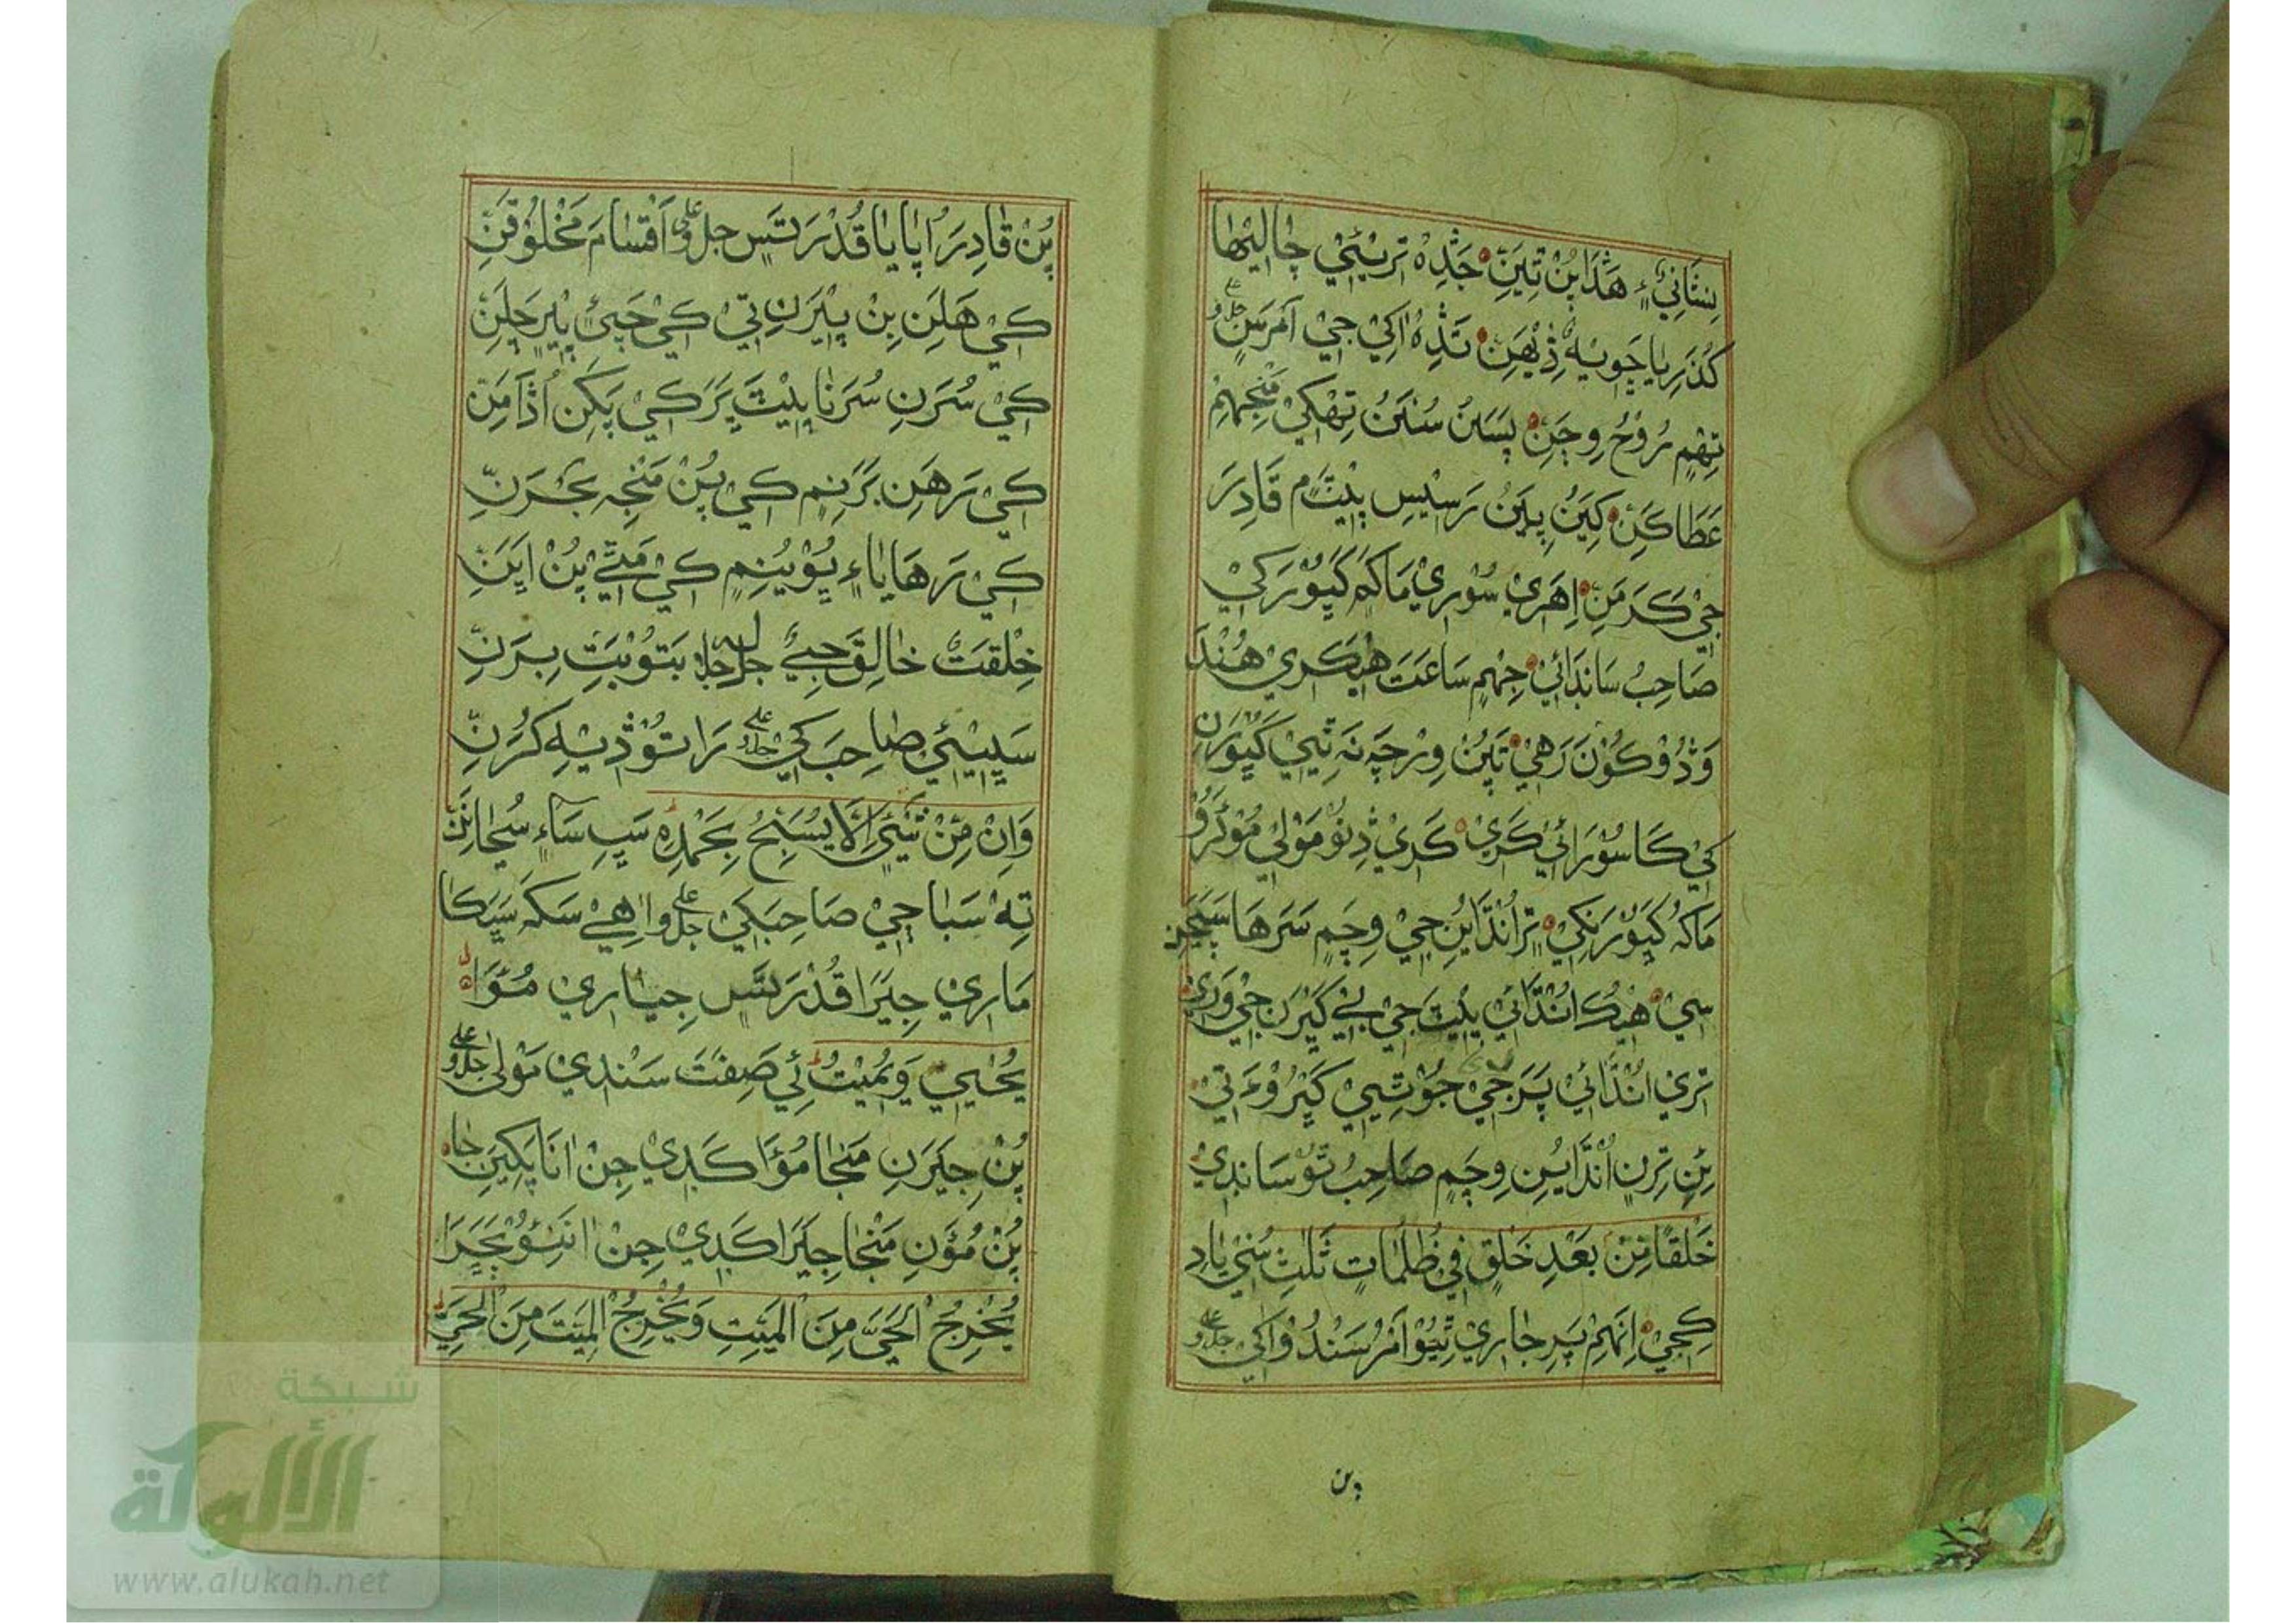 بِسَتَانِيْ هَڎَا پُنْ تِيَنِّ جَڎِهْ تريْئِيْ چَاليْهَا
كُذَرِيا چَويْهْ ڎِيْهَنِ تَڎِهْ اكِيْ جِيْ اَمْرَسَنِ جل وعلى
تِهْمِ رُوْحُ وِجَنِ پَسَنُ سُنَنُ تِهْكِيْ مَنْجِهْمِ
عَطَا كَنِ كِيَنُ پِيَنُ رَسيْسِ پيْٽَمِ قَادِرَ
جِيْ كَرَمَنِ اِهَرِيْ سُوْرِيْ مَا كَهْ كَيُوْرَ كِيْ
صَاحِبُ سَانْدَائِيْ جِهْمِ سَاعَتَ هيْكَرِيْ هُنْدَ
وَڎُوْ كُوْنَ رَهِيْ تَيُنْ وِرْچَهْ نَہ ٿِيِيْ كَيُوْرَنِ
كِيْ كَاسُوْرَائِيْ كَرِيْ كَرِيْ ڎِنُوْ مَوْلِيْ مُوْكَرُوْ
مَا كَہُ كَيُوْرَنكِيْ ترانْڎَايُنِ جِيْ وِچَمِ سَرَهَا سَپَجَنِ
سِيْ هيْكُ انْڎَائِيْ پيْٽَ جِيْ ٻِيْ كَيْرَنْ جِيْ وَرِيْ
ترِيْ انْڎَائِيْ پَرَ جِيْ جُوْ ٿِيِيْ كَيْرُوْءَ تِيْ
ٻِنِ ترِنِ انْڎَايُنِ وِچَمِ صَاحِبُ تُوْ سَانْدِيْ
خَلْقًا مِنْ بَعْدِ خَلْقٍ فِي ظُلُمَاتٍ ثَلٰثٍ سُنِيْ يَادِ
كِجِيْ اِنَهِمْ پَرِ جَارِيْ ٿِيُوْ اَمْرُ سَنْدُوْ اكِيْ جل وعلى
پن
پُنْ قَادِرَ اُپَايَا قُدْرَتَسِ جل وعلى اَقْسَامَ مَخْلُوْقَنِّ
كِيْ هَلَنِ ٻِنِ پيْرَنِ تِيْ كِيْ چَئِيْ پيْرِ چَلَنِّ
كِيْ سُرَنِ سُرَنَا پيْٽَ پَرَ كِيْ پَكِنِ اُڎَامَنِّ
كِيْ رَهَنِ بَرَنِمِ كِيْ پُنْ مَنْجِہ بَحْرَنِّ
كِيْ رَهَايَاءِ پُوْيُنِمِ كِيْ مَٽِيْ پُنْ اِيَنِّ
خِلْقَتَ خَالِقَ جِيْ جل جلاله بَتُوْ بَيَتِ بِرَنِّ
سَڀيْئِيْ صَاحِبَ كِيْ جل وعلى رَاتُوْ ڎِيْهِ كَرَنِّ
وَاِنْ مِنْ شَيْءٍ اِلَّا يُسَبِّحُ بِحَمْدِهِ سَڀِ سَاءِ سُبْحَانَنِ
تِہ سَبَاجِيْ صَاحِبَ كِيْ جل وعلى اهِيْ سَكَہ سَڀَكَا
مَارِيْ جِيَرَا قُدْرَتَسِ جِيَارِيْ مُئَوَا
يُحْيِيْ وَيُمِيْتُ ئِيْ صِفَتَ سَنْدِيْ مَوْلٰى جل وعلى
پُنْ جِيَرَنِ مَنْجَا مُؤَا كَڍِيْ جِنْ انَا پَكِيَنِ جَا
پُنْ مُؤَنِ مَنْجَا جِيَرَا كَڍِيْ جِنْ انَئُوْ بَچَرَا
يُخْرِجُ الْحَيَّ مِنَ الْمَيِّتِ وَيُخْرِجُ الْمَيِّتَ مِنَ الْحَيِّ
شبكة
الألوكة
www.alukah.net